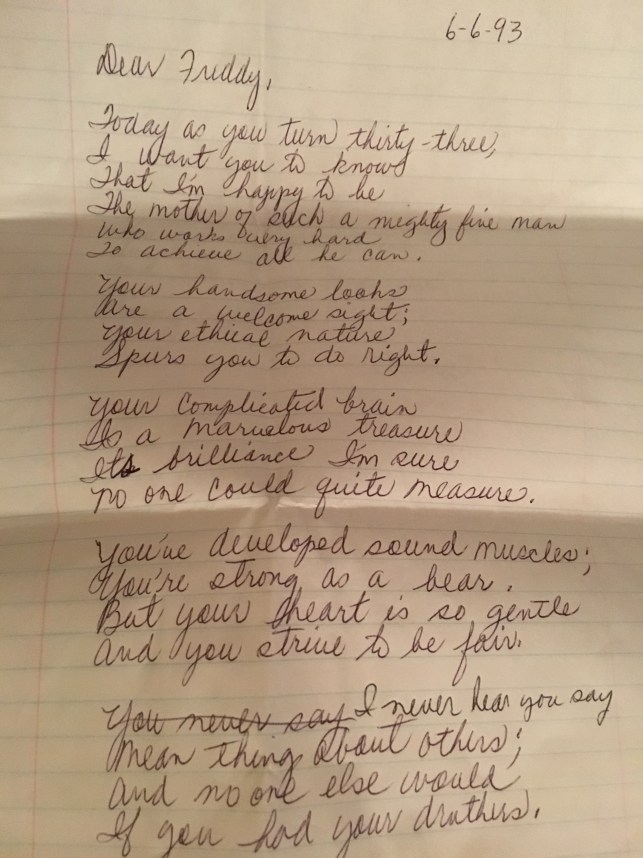 6-6-93
Dear Freddy,
Today as you turn thirty-three,
I want you to know
That I'm happy to be
The mother of such a mighty fine man
who works very hard
To achieve all he can.
Your handsome looks
Are a welcome sight;
Your ethical nature
Spurs you to do right.
Your complicated brain
Is a marvelous treasure
Its brilliance I'm sure
no one could quite measure.
You've developed sound muscles;
You're strong as a bear.
But your heart is so gentle
And you strive to be fair.
You never say I never hear you say
Mean thing about others;
And no one else would
If you had your druthers.